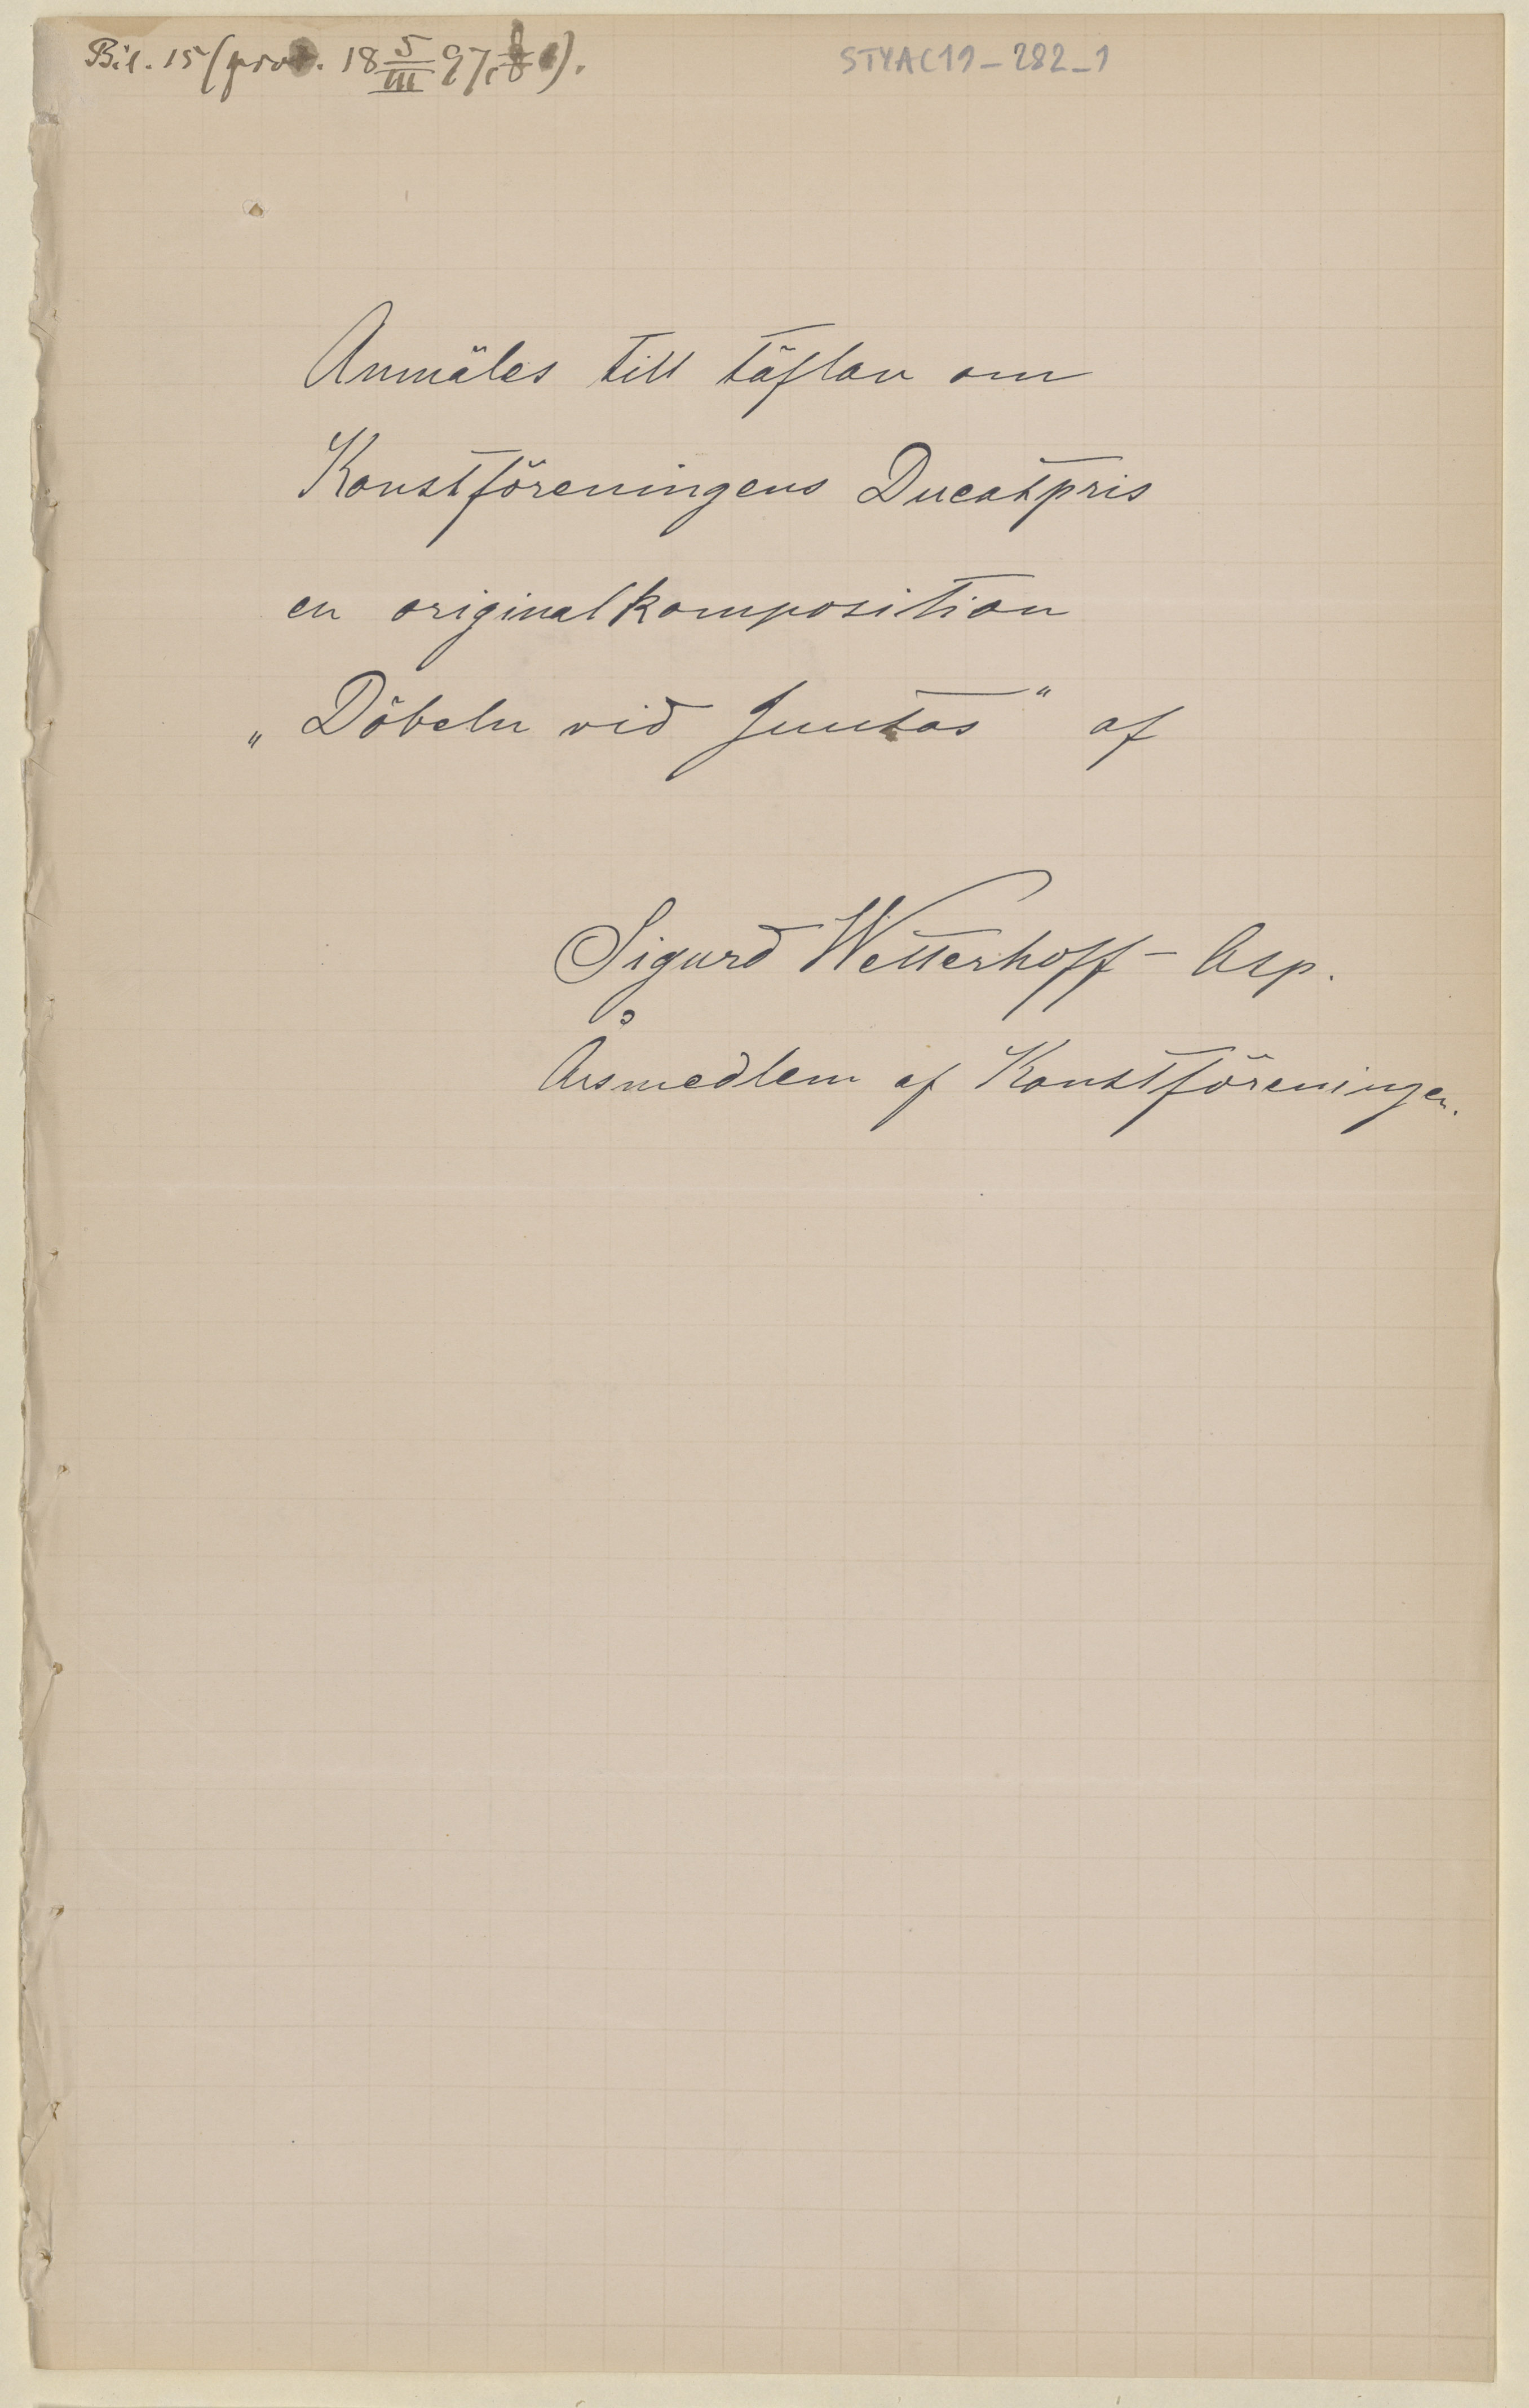 Bil. 15 (prot. 18 5/III 97, §
STYA C19_282_1
Anmäles till täflan om
Konstföreningens Ducatpris
en originalkomposition
„Döbeln vid Juutas" af
Sigurd Wetterhoff-Asp.
Årsmedlem af Konstföreningen.